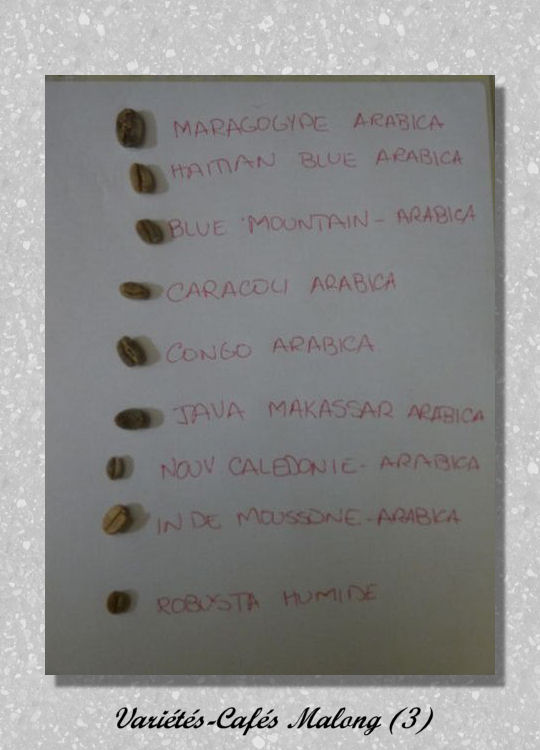 MARAGOGYPE ARABICA
HAITIAN BLUE ARABICA
BLUE MOUNTAIN - ARABICA
CARACOLI ARABICA
CONGO ARABICA
JAVA MAKASSAR ARABICA
NOUV CALEDONIE - ARABICA
INDE MOUSSONE - ARABICA
ROBUSTA HUMIDE
Variétés-Cafés Malong (3)